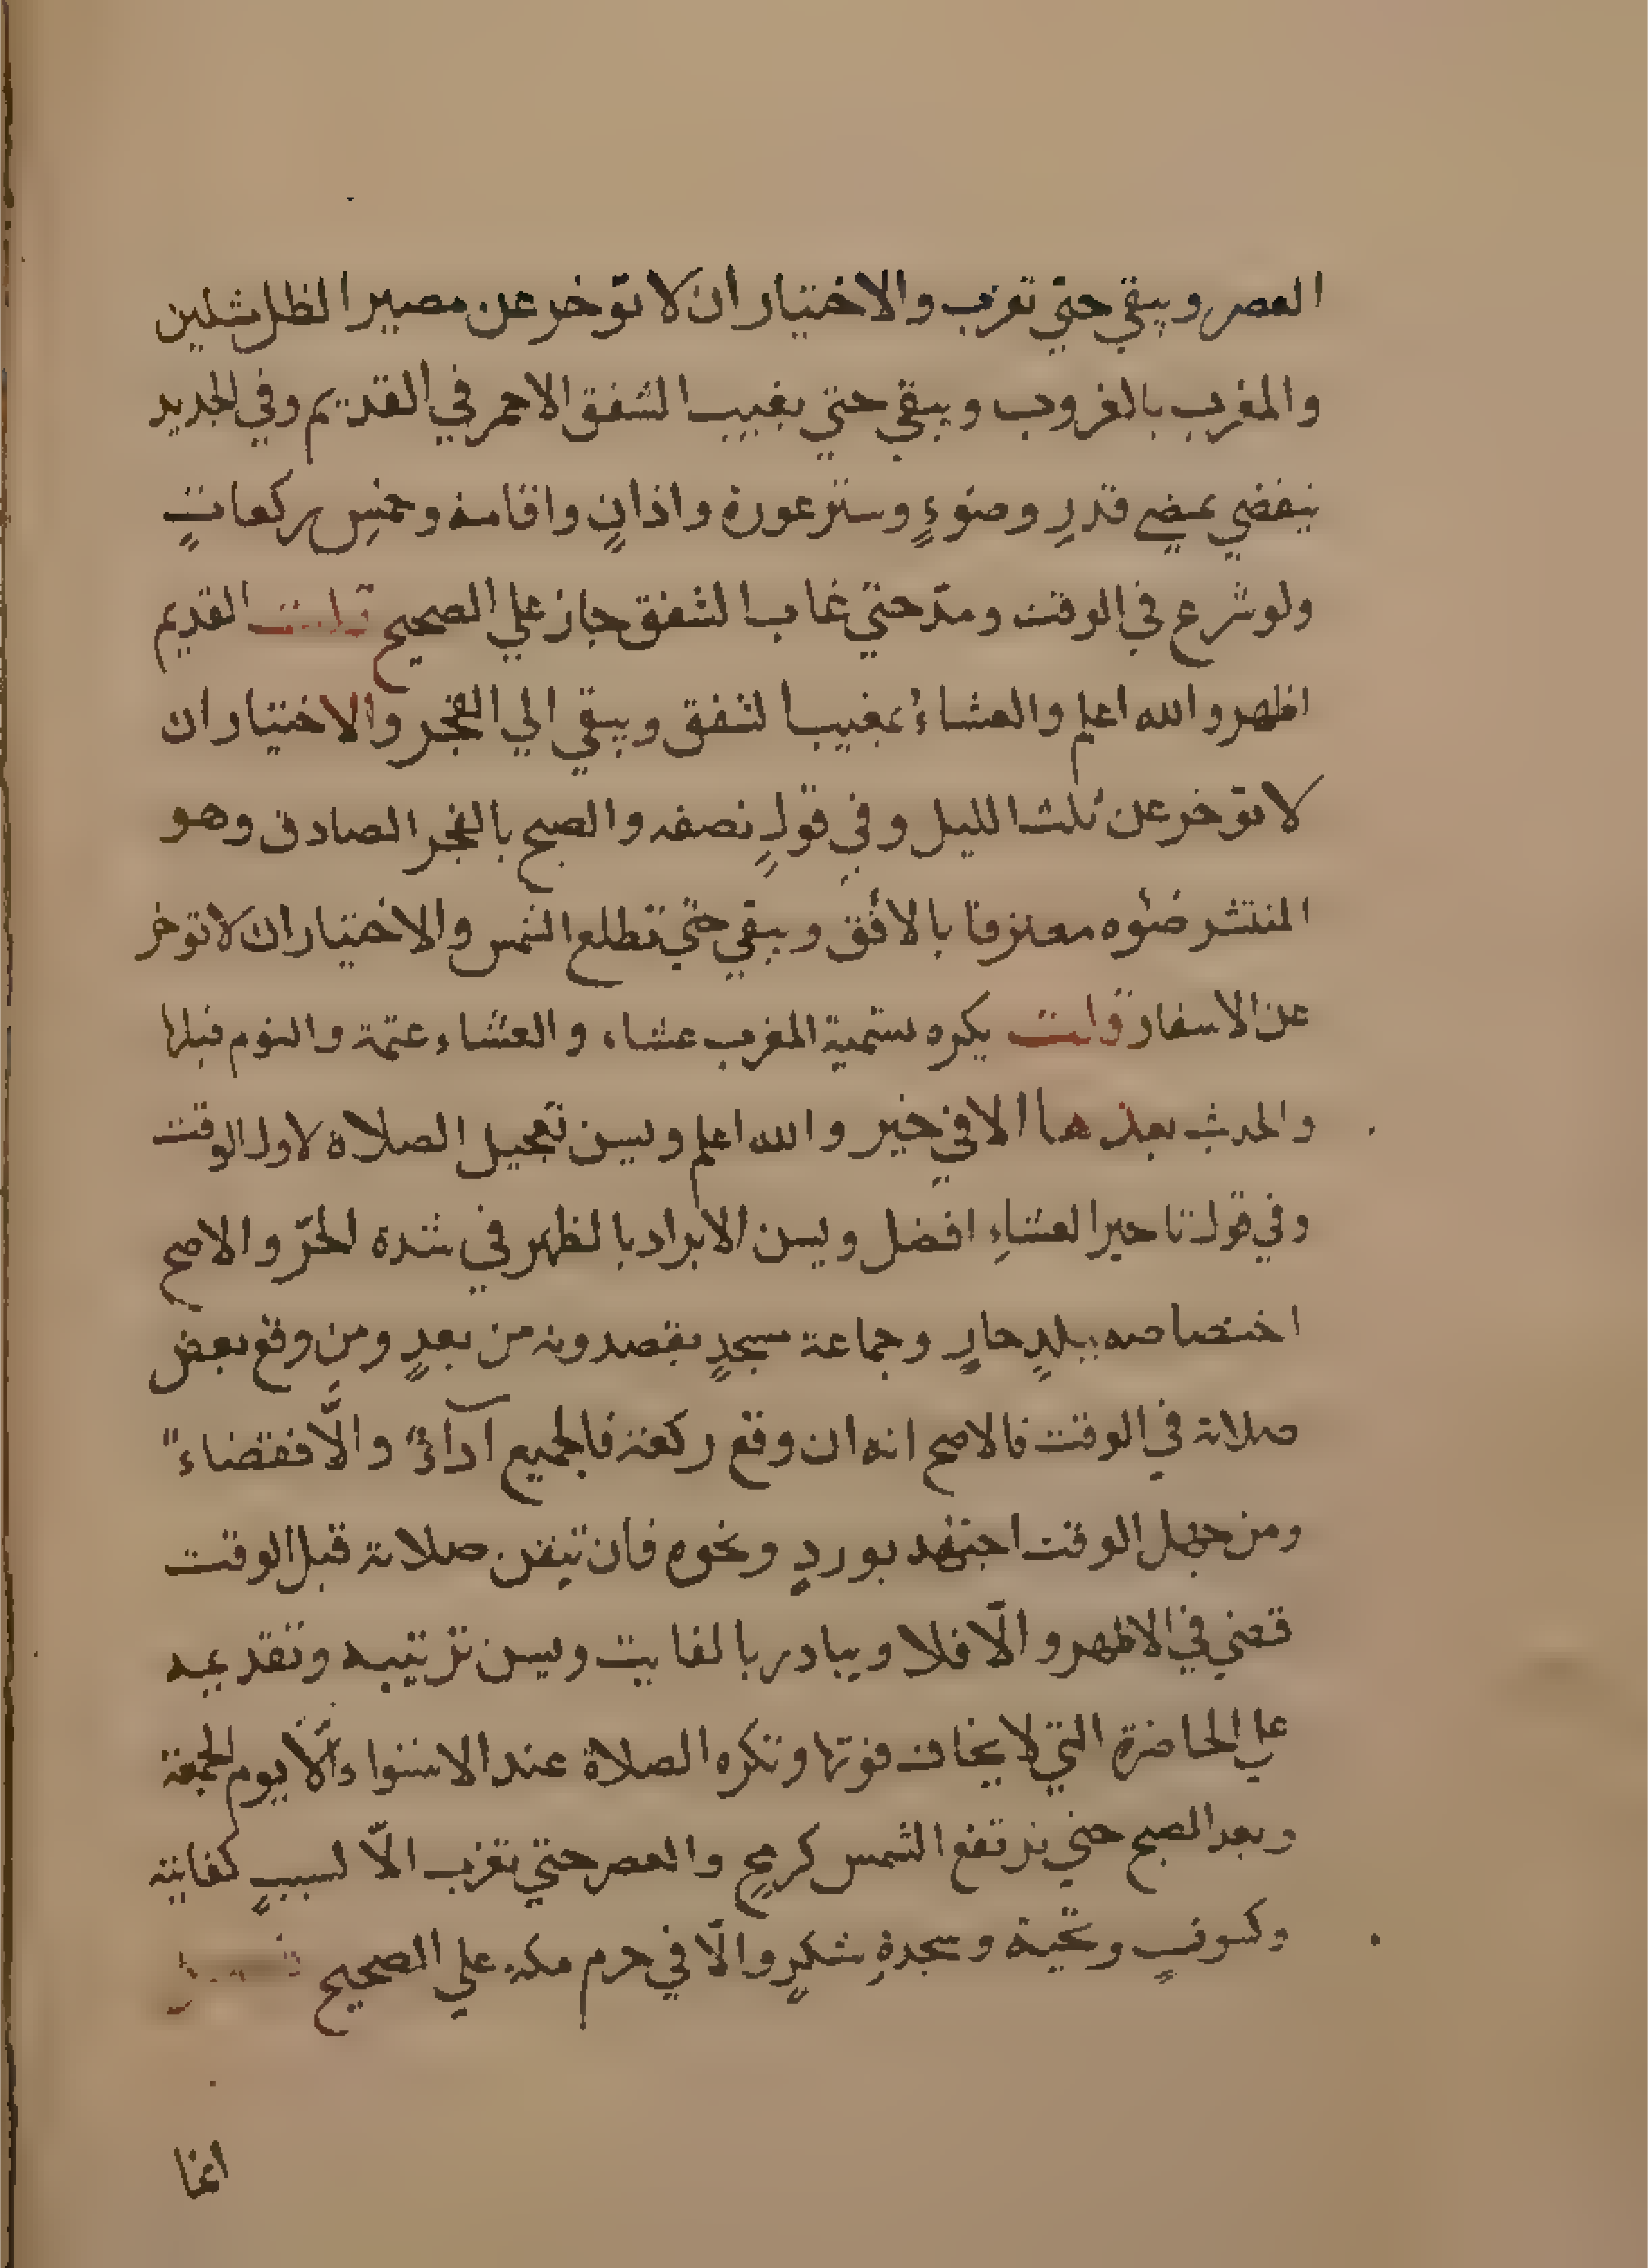 العصر ويبقي حتي تغرب والاختيار ان لا توخر عن مصير الظل مثلين
والمغرب بالغروب ويبقي حتي يغيب الشفق الاحمر في القديم وفي الجديد
ينقضي بمضي قدرِ وضوءٍ وستر عورة واذانٍ واقامة وخمسِ ركعاتٍ
ولو شرع في الوقت ومدّ حتي غاب الشفق جاز علي الصحيح قلت القديم
اظهر والله اعلم والعشاءُ بمغيب الشفق ويبقي الي الفجر والاختيار ان
لا توخر عن ثلث الليل وفي قولٍ نصفه والصبح بالفجر الصادق وهو
المنتشر ضوُه معترضا بالافُق ويبقي حتي تطلع الشمس والاختيار ان لا توخر
عن الاسفار قلت يكره تسمية المغرب عشاء والعشاء عتمة والنوم قبلها
والحديث بعدها الا في خير والله اعلم ويسن تعجيل الصلاة لاول الوقت
وفي قول تاخير العشاءِ افضل ويسن الابراد بالظهر في شدة الحرّ والاصح
اختصاصه ببلدٍ حارٍ وجماعة مسجدٍ يقصدونه من بعدٍ ومن وقع بعض
صلاته في الوقت فالاصح انه ان وقع ركعة فالجميع آداءٌ والّا فقضاءً
ومن جهل الوقت اجتهد بوردٍ ونحوه فان تيقن صلاته قبل الوقت
قضي في الاظهر والّا فلا ويبادر بالفايت ويسن ترتيبه وتقديمه
علي الحاضرة التي لا يخاف فوتها وتكره الصلاة عند الاستواء الّا يوم الجمعة
وبعد الصبح حتي ترتفع الشمس كرمحٍ والعصر حتي تغرب الّا لسببٍ كفايتة
وكسوفٍ وتحية وسجدةِ شكرٍ والّا في حرم مكة علي الصحيح فصل
انما